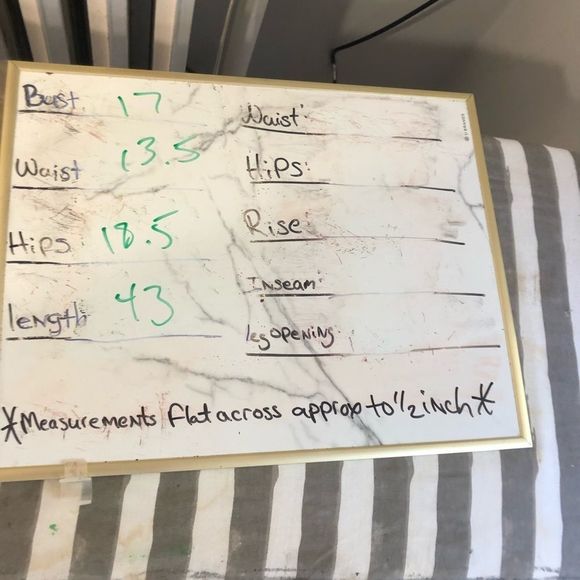 Bust 17
Waist 13.5
Hips 18.5
length 43
Waist:
Hips:
Rise:
Inseam:
leg opening
*Measurements flat across approx to 1/2 inch*